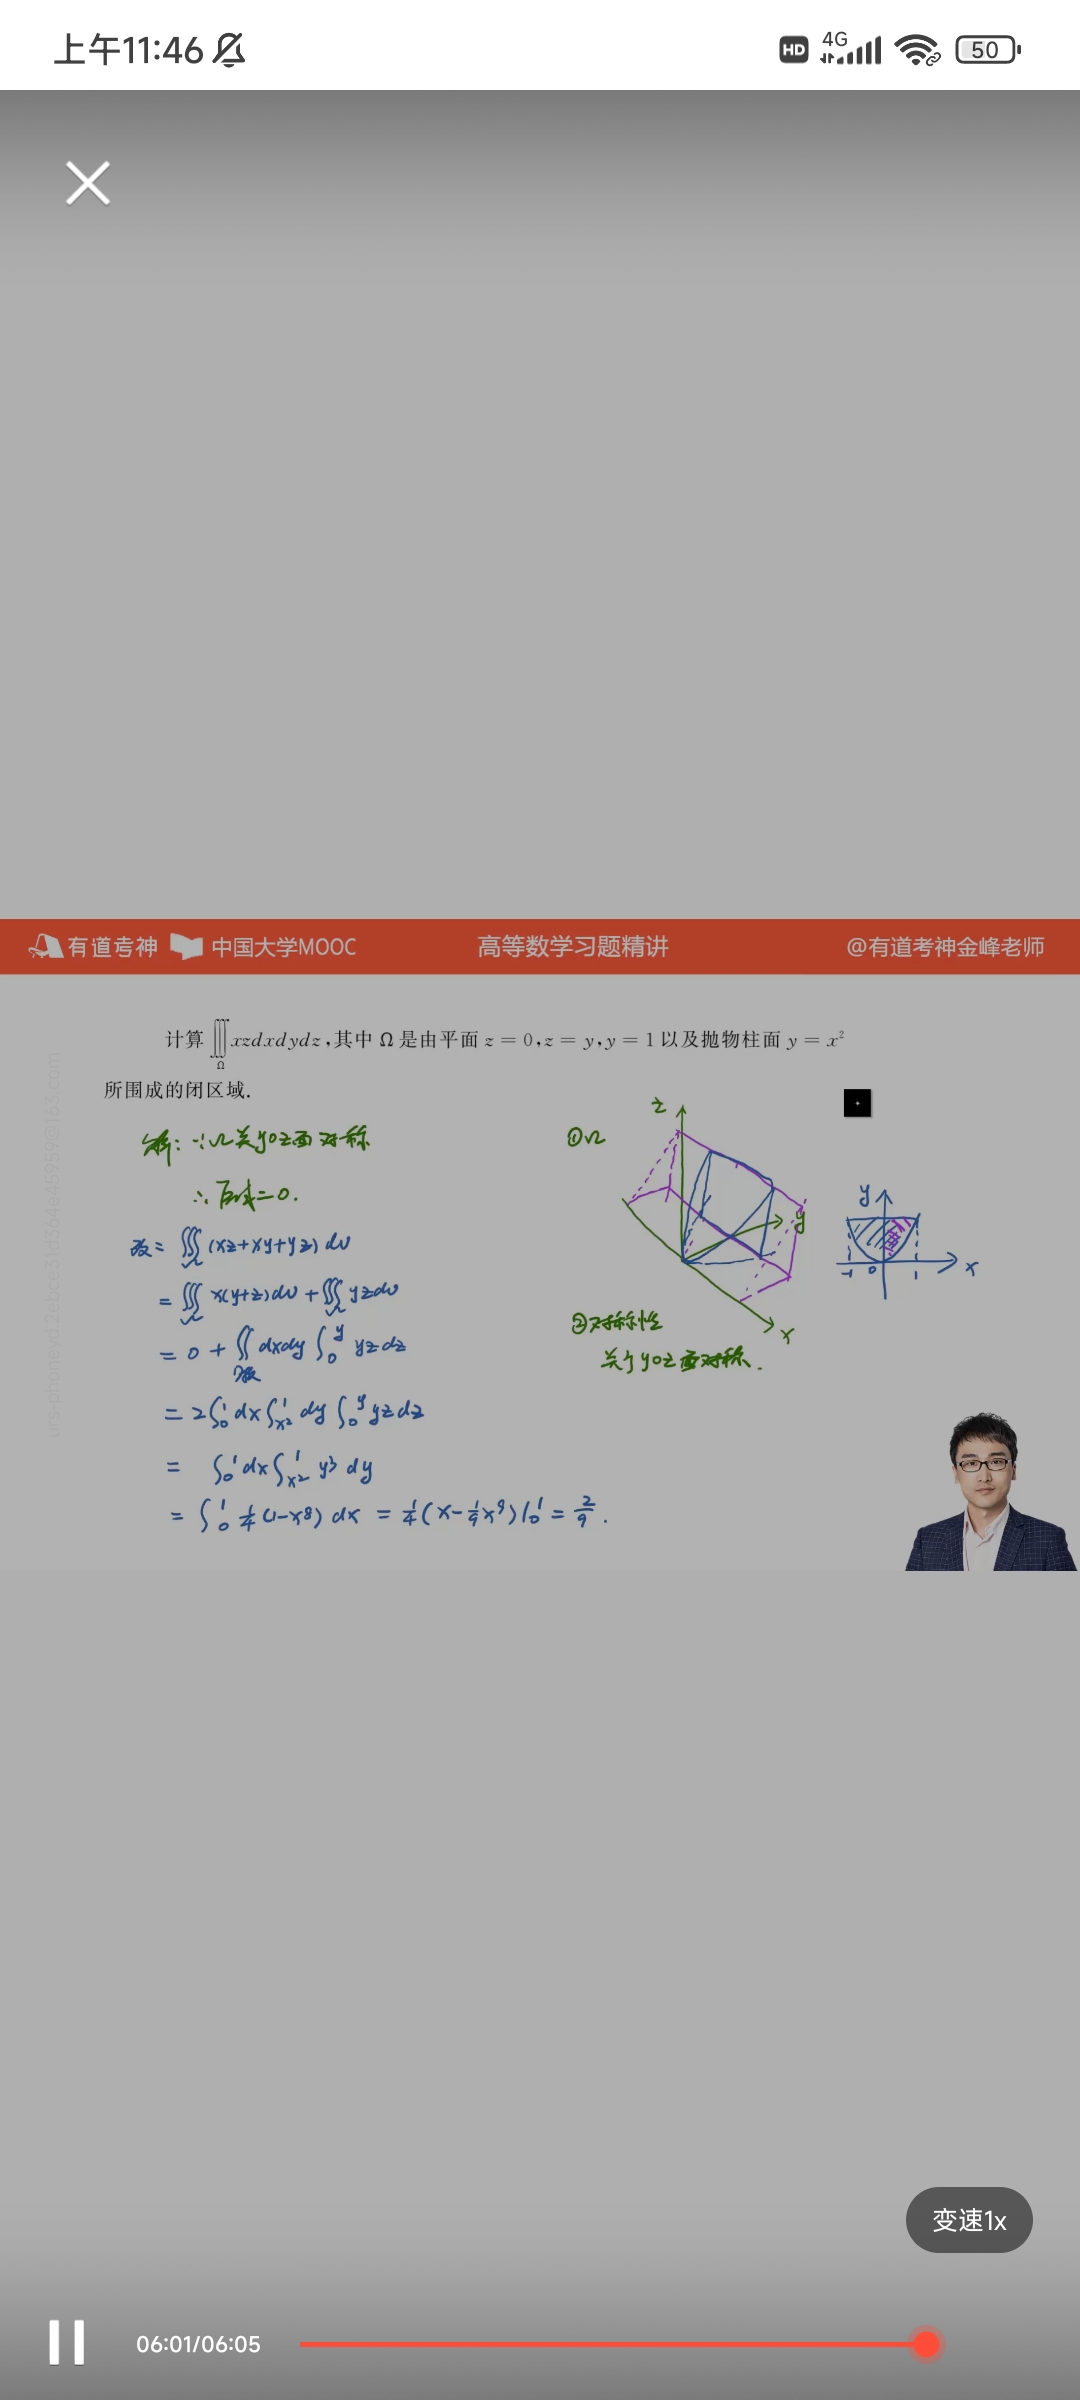 上午11:46
HD 4G 50
有道考神 中国大学MOOC 高等数学习题精讲 @有道考神金峰老师
计算 ∭Ω xzdxdydz,其中 Ω 是由平面 z = 0,z = y,y = 1 以及抛物柱面 y = x²
所围成的闭区域.
解: ∵Ω关yoz面对称
∴ 原式=0.
改= ∭Ω (xz+xy+yz) dv
= ∭Ω x(y+z)dv + ∭Ω yzdv
= 0 + ∬ dxdy ∫₀^y yzdz
= 2∫₀¹ dx ∫_{x²}^1 dy ∫₀^y yzdz
= ∫₀¹ dx ∫_{x²}^1 y³ dy
= ∫₀¹ 1/4 (1-x⁸) dx = 1/4 (x - 1/9 x⁹)|₀¹ = 2/9 .
①Ω
z
y
x
②对称性
关于yoz面对称.
y
-1 0 1 x
变速1x
06:01/06:05